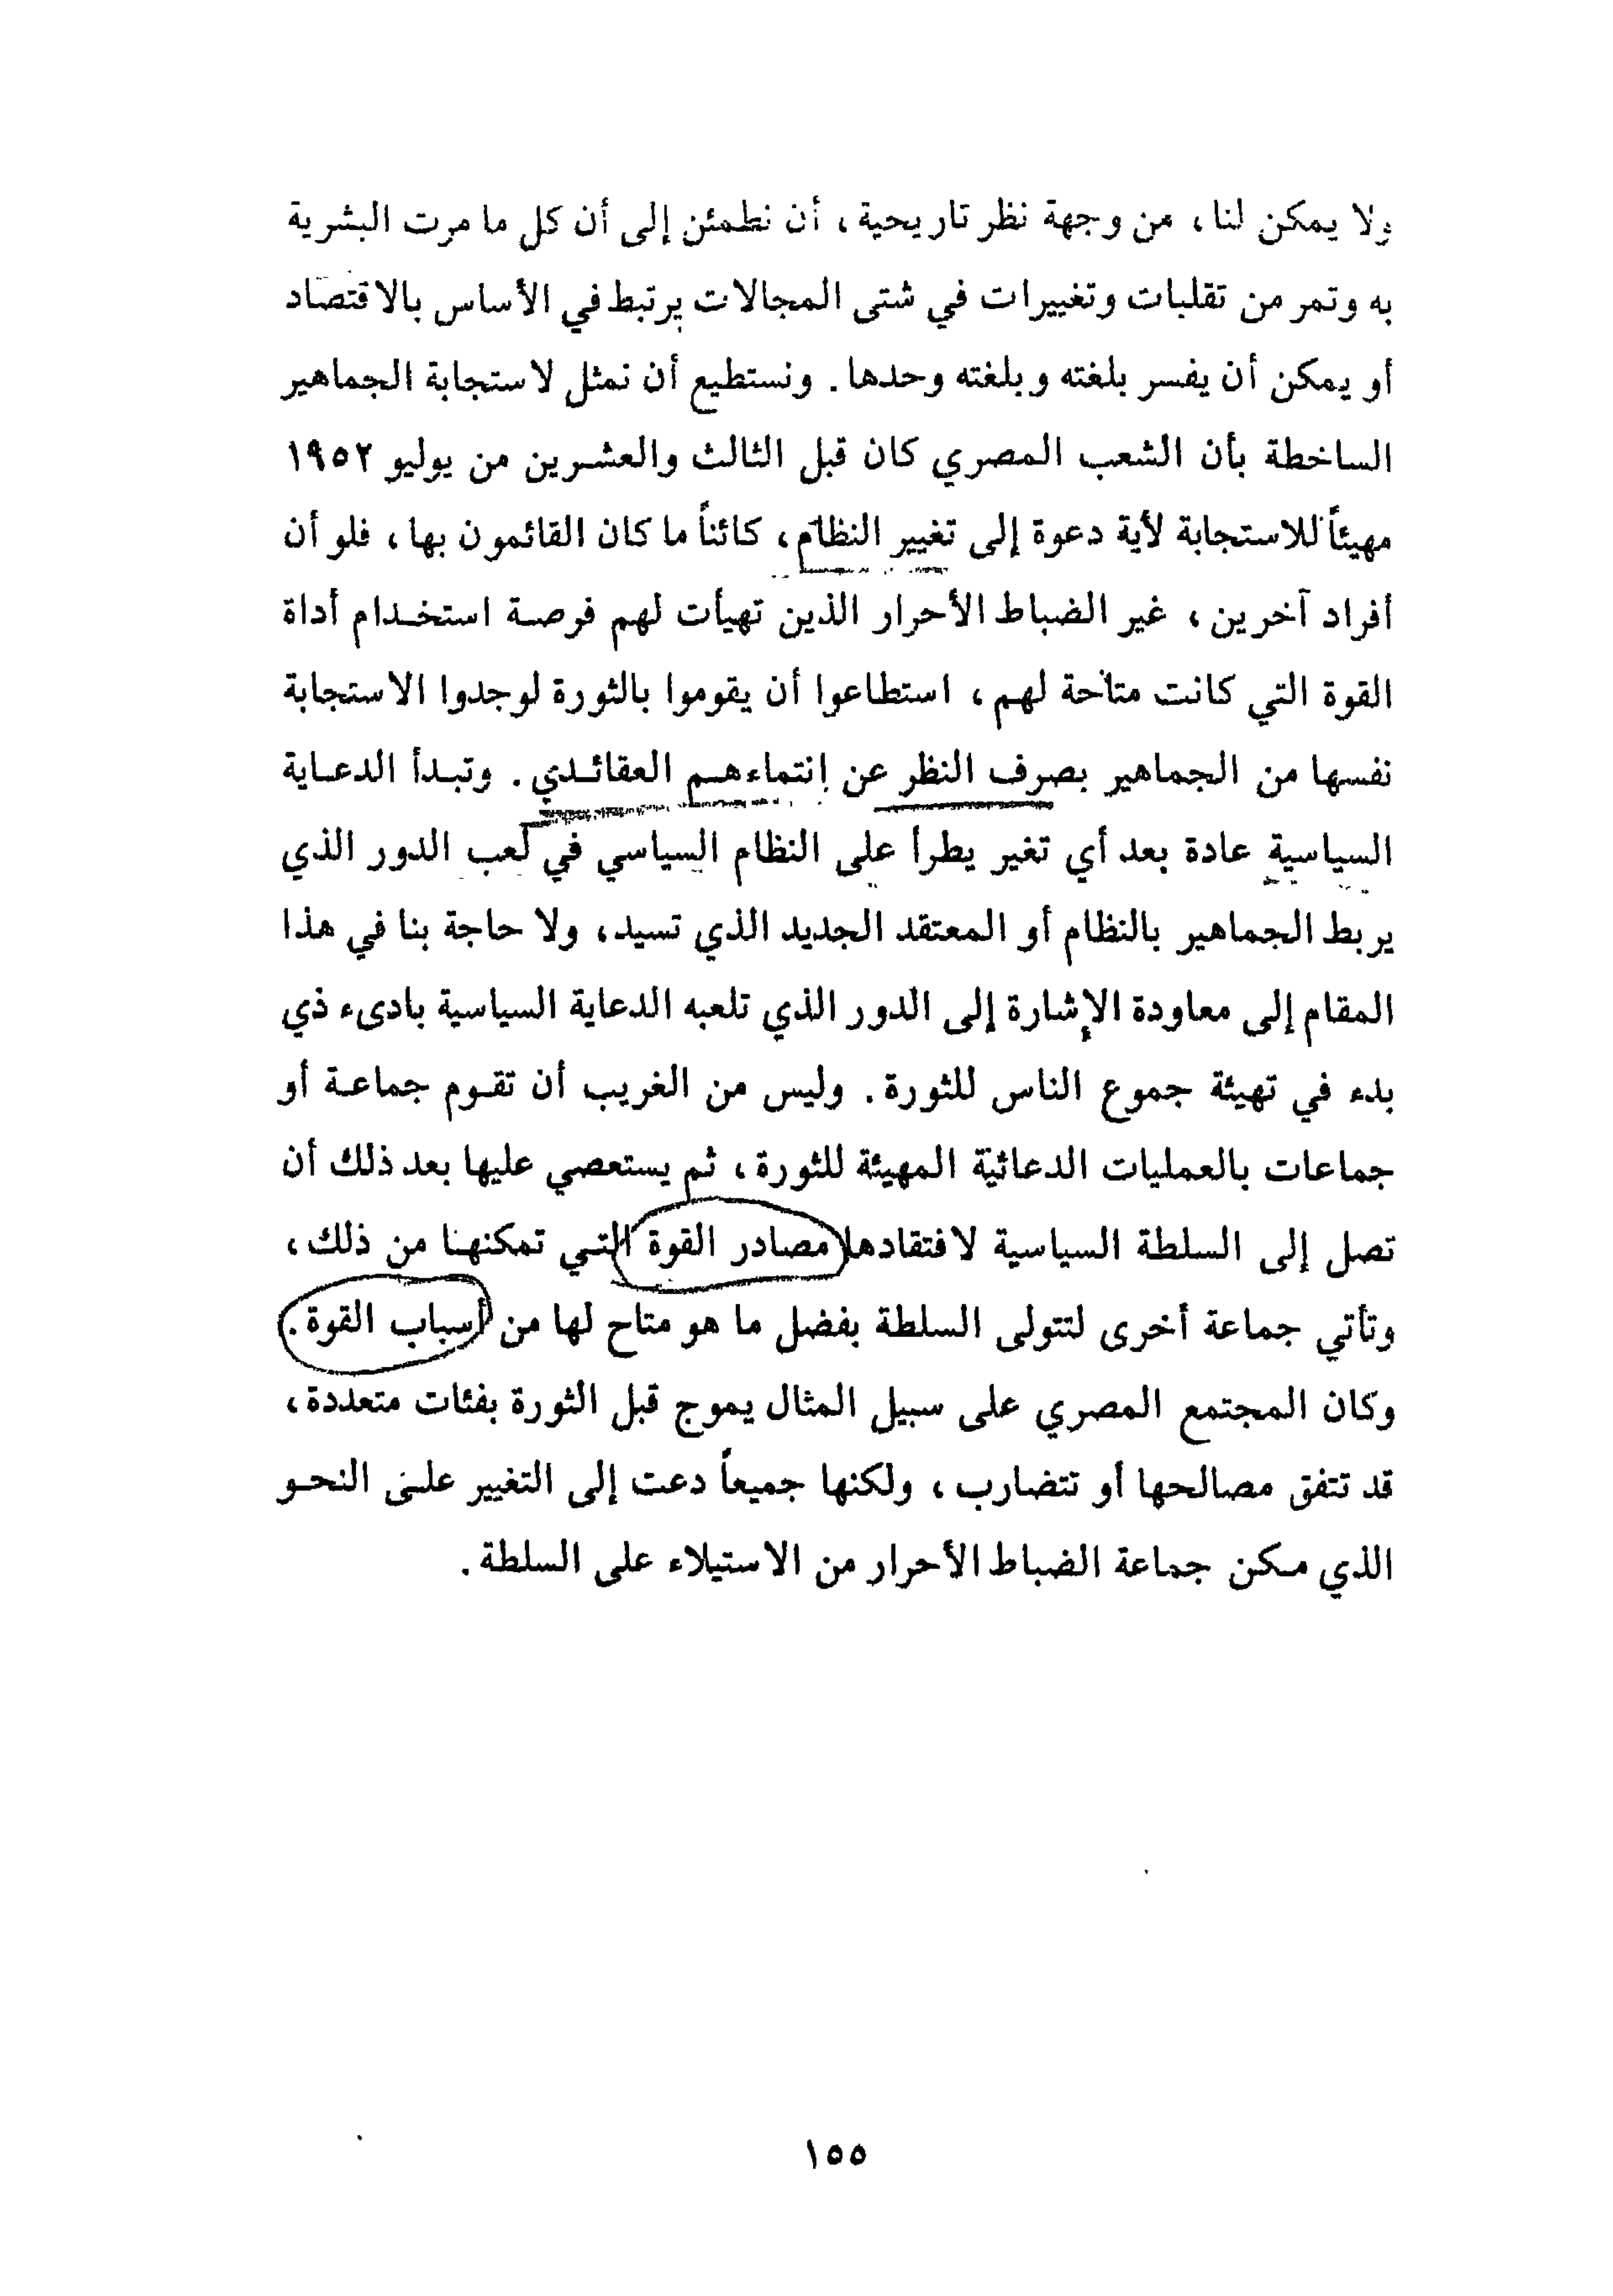 ولا يمكن لنا، من وجهة نظر تاريحية، أن نطمئن إلى أن كل ما مرت البشرية
به وتمر من تقلبات وتغييرات في شتى المجالات يرتبط في الأساس بالاقتصاد
أو يمكن أن يفسر بلغته وبلغته وحدها. ونستطيع أن نمثل لاستجابة الجماهير
الساخطة بأن الشعب المصري كان قبل الثالث والعشرين من يوليو ١٩٥٢
مهيئاً للاستجابة لأية دعوة إلى تغيير النظام، كائناً ما كان القائمون بها، فلو أن
أفراد آخرين، غير الضباط الأحرار الذين تهيأت لهم فرصة استخدام أداة
القوة التي كانت متاحة لهم، استطاعوا أن يقوموا بالثورة لوجدوا الاستجابة
نفسها من الجماهير بصرف النظر عن إنتماءهم العقائدي. وتبدأ الدعاية
السياسية عادة بعد أي تغير يطرأ على النظام السياسي في لعب الدور الذي
يربط الجماهير بالنظام أو المعتقد الجديد الذي تسيد، ولا حاجة بنا في هذا
المقام إلى معاودة الإشارة إلى الدور الذي تلعبه الدعاية السياسية بادىء ذي
بدء في تهيئة جموع الناس للثورة. وليس من الغريب أن تقوم جماعة أو
جماعات بالعمليات الدعائية المهيئة للثورة، ثم يستعصي عليها بعد ذلك أن
تصل إلى السلطة السياسية لافتقادها مصادر القوة التي تمكنها من ذلك،
وتأتي جماعة أخرى لتتولى السلطة بفضل ما هو متاح لها من أسباب القوة.
وكان المجتمع المصري على سبيل المثال يموج قبل الثورة بفئات متعددة،
قد تتفق مصالحها أو تتضارب، ولكنها جميعاً دعت إلى التغيير على النحو
الذي مكن جماعة الضباط الأحرار من الاستيلاء على السلطة.
١٥٥